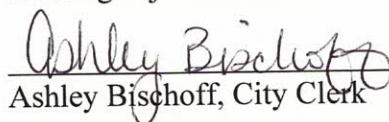 Ashley Bischoff
Ashley Bischoff, City Clerk